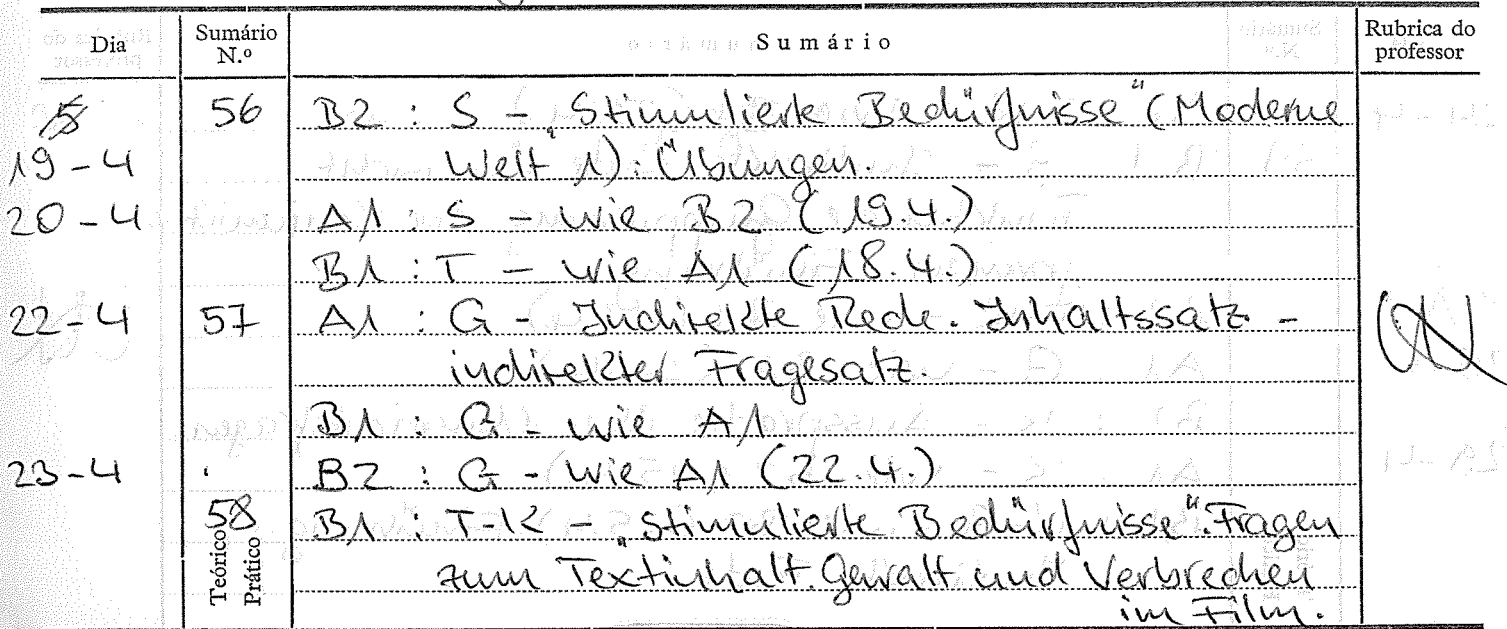 Dia Sumário N.º Sumário Rubrica do professor
56 B2 : S - „Stimulierte Bedürfnisse“ (Moderne
19-4 Welt 1): Übungen.
20-4 A1 : S - wie B2 (19.4.)
B1 : T - wie A1 (18.4.)
22-4 57 A1 : G - Indirekte Rede. Inhaltssatz -
indirekter Fragesatz.
B1 : G - wie A1
23-4 B2 : G - wie A1 (22.4.)
58 B1 : T-K - „Stimulierte Bedürfnisse“. Fragen
Teórico Prático zum Textinhalt. Gewalt und Verbrechen
im Film.